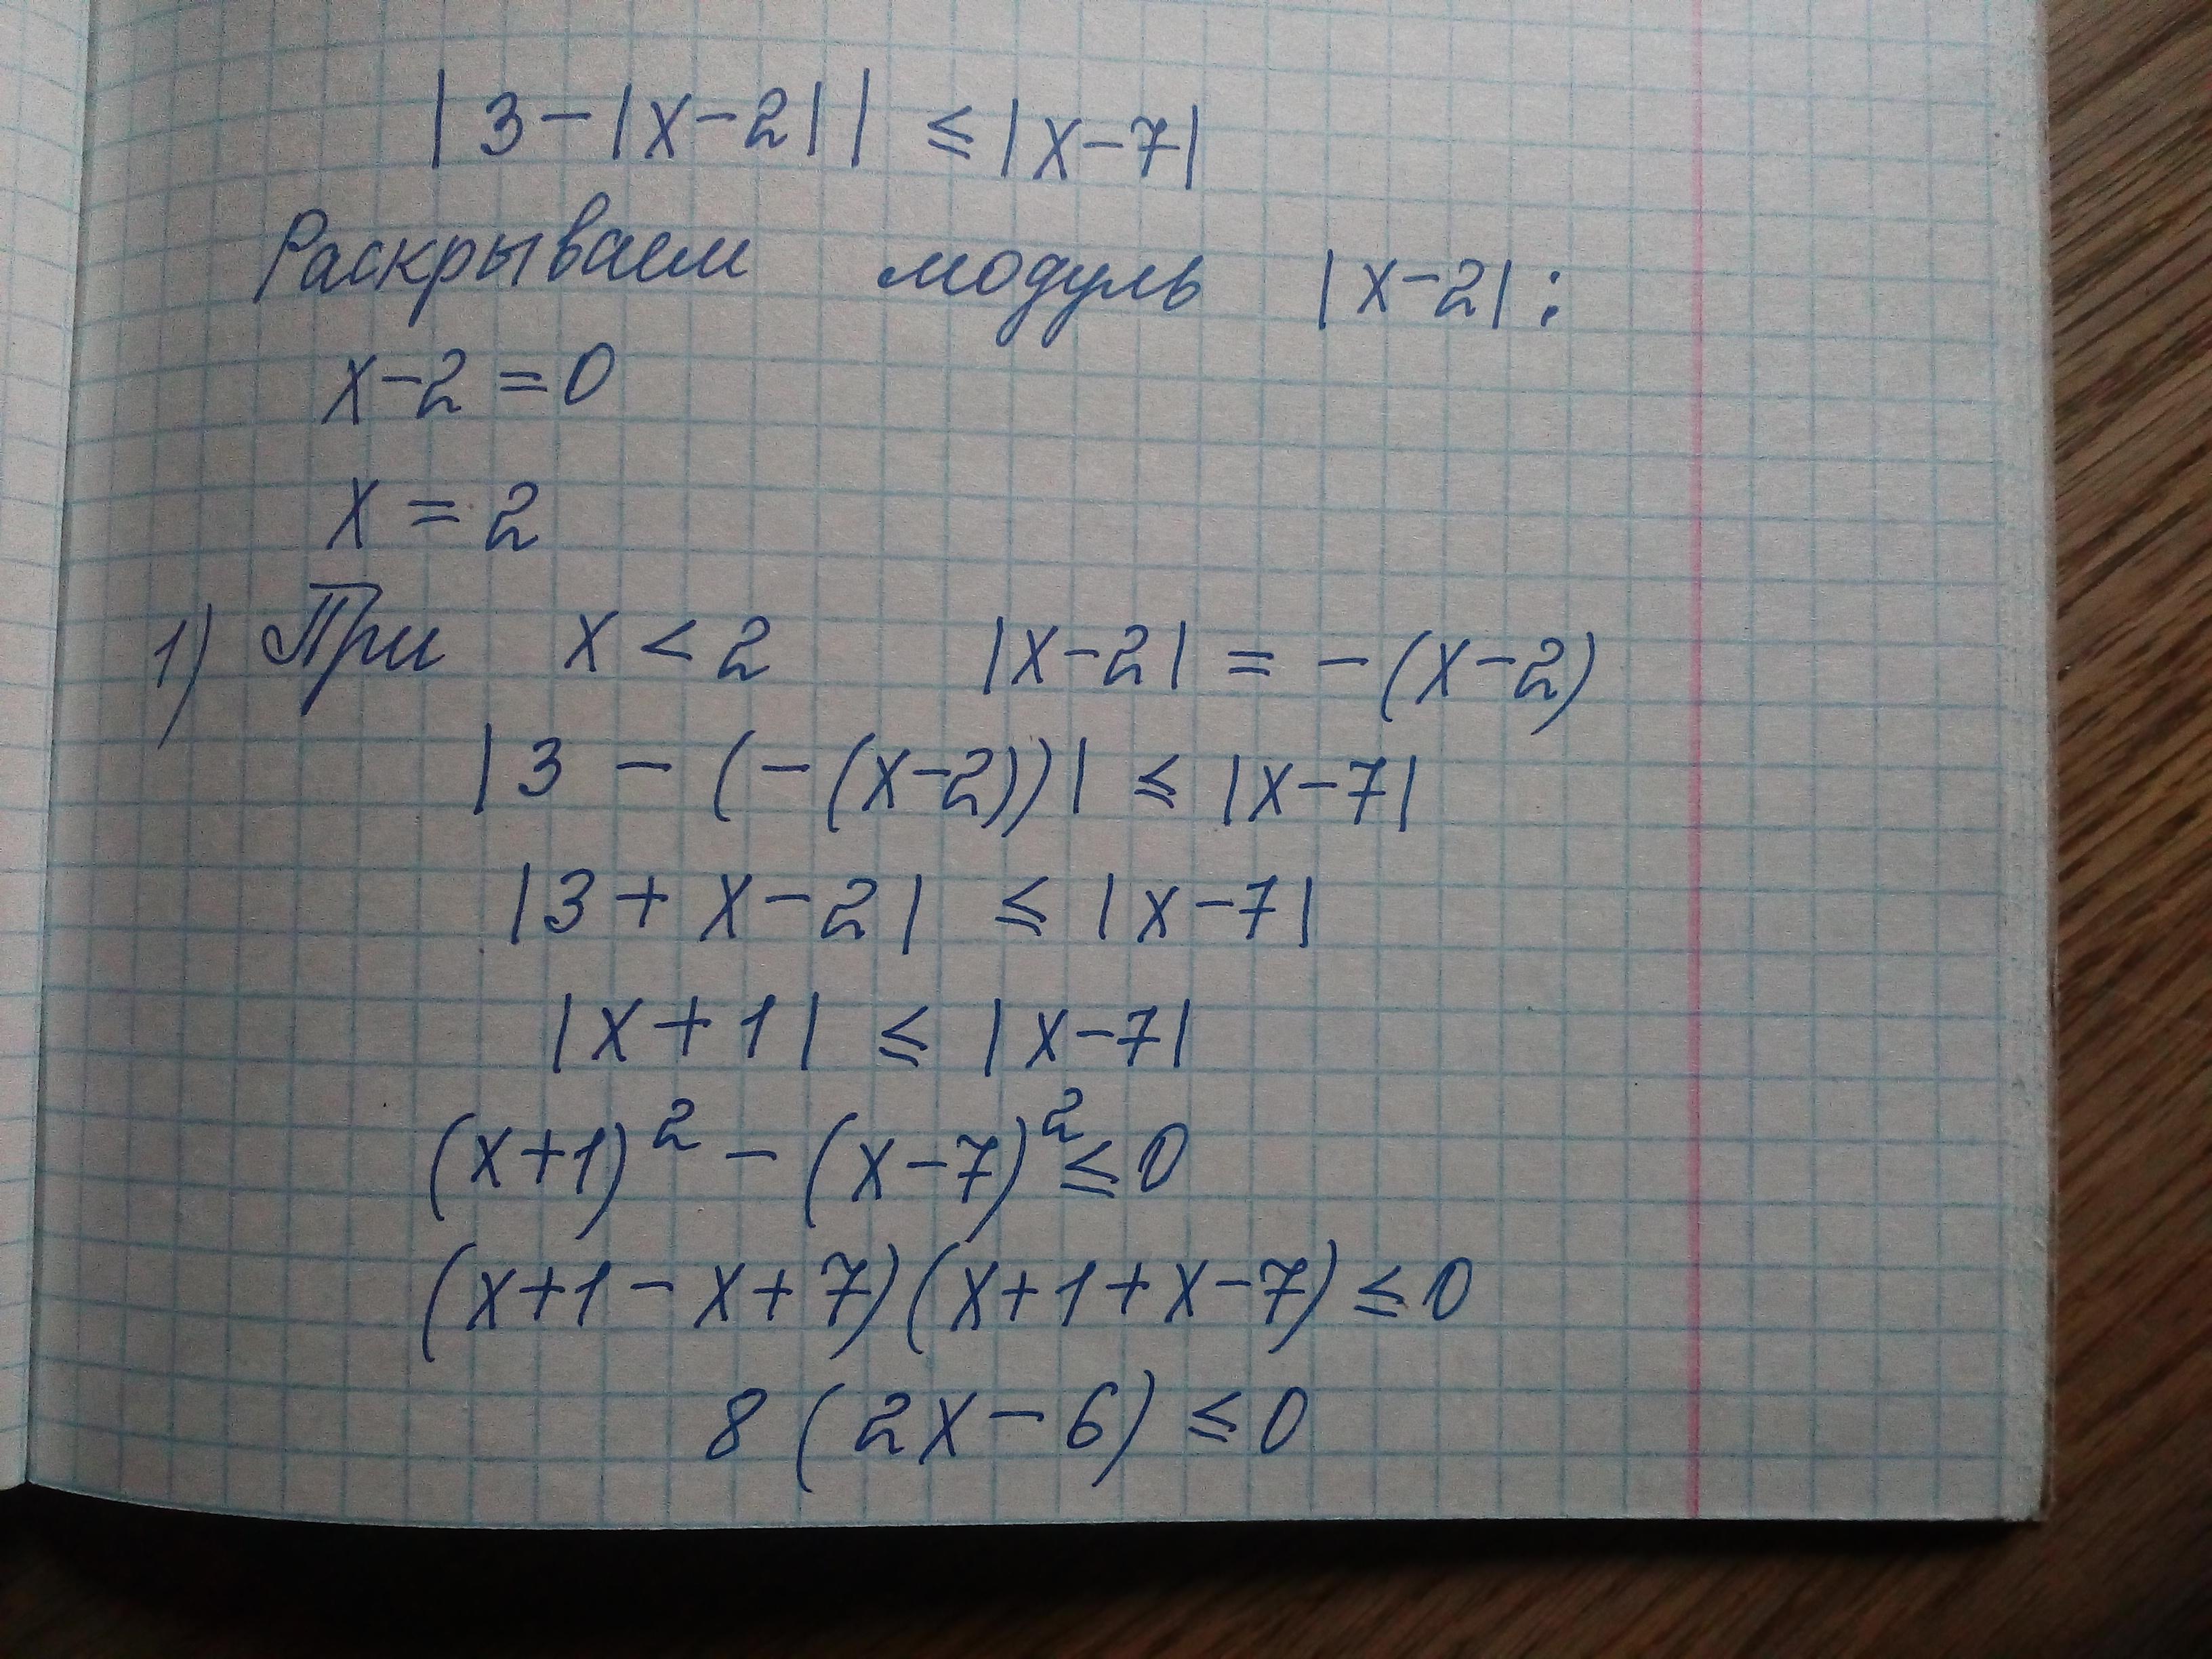 |3-|x-2|| ≤ |x-7|
Раскрываем модуль |x-2|:
x-2=0
x=2
1) При x<2 |x-2| = -(x-2)
|3 - (-(x-2))| ≤ |x-7|
|3+x-2| ≤ |x-7|
|x+1| ≤ |x-7|
(x+1)² - (x-7)² ≤ 0
(x+1-x+7)(x+1+x-7) ≤ 0
8(2x-6) ≤ 0